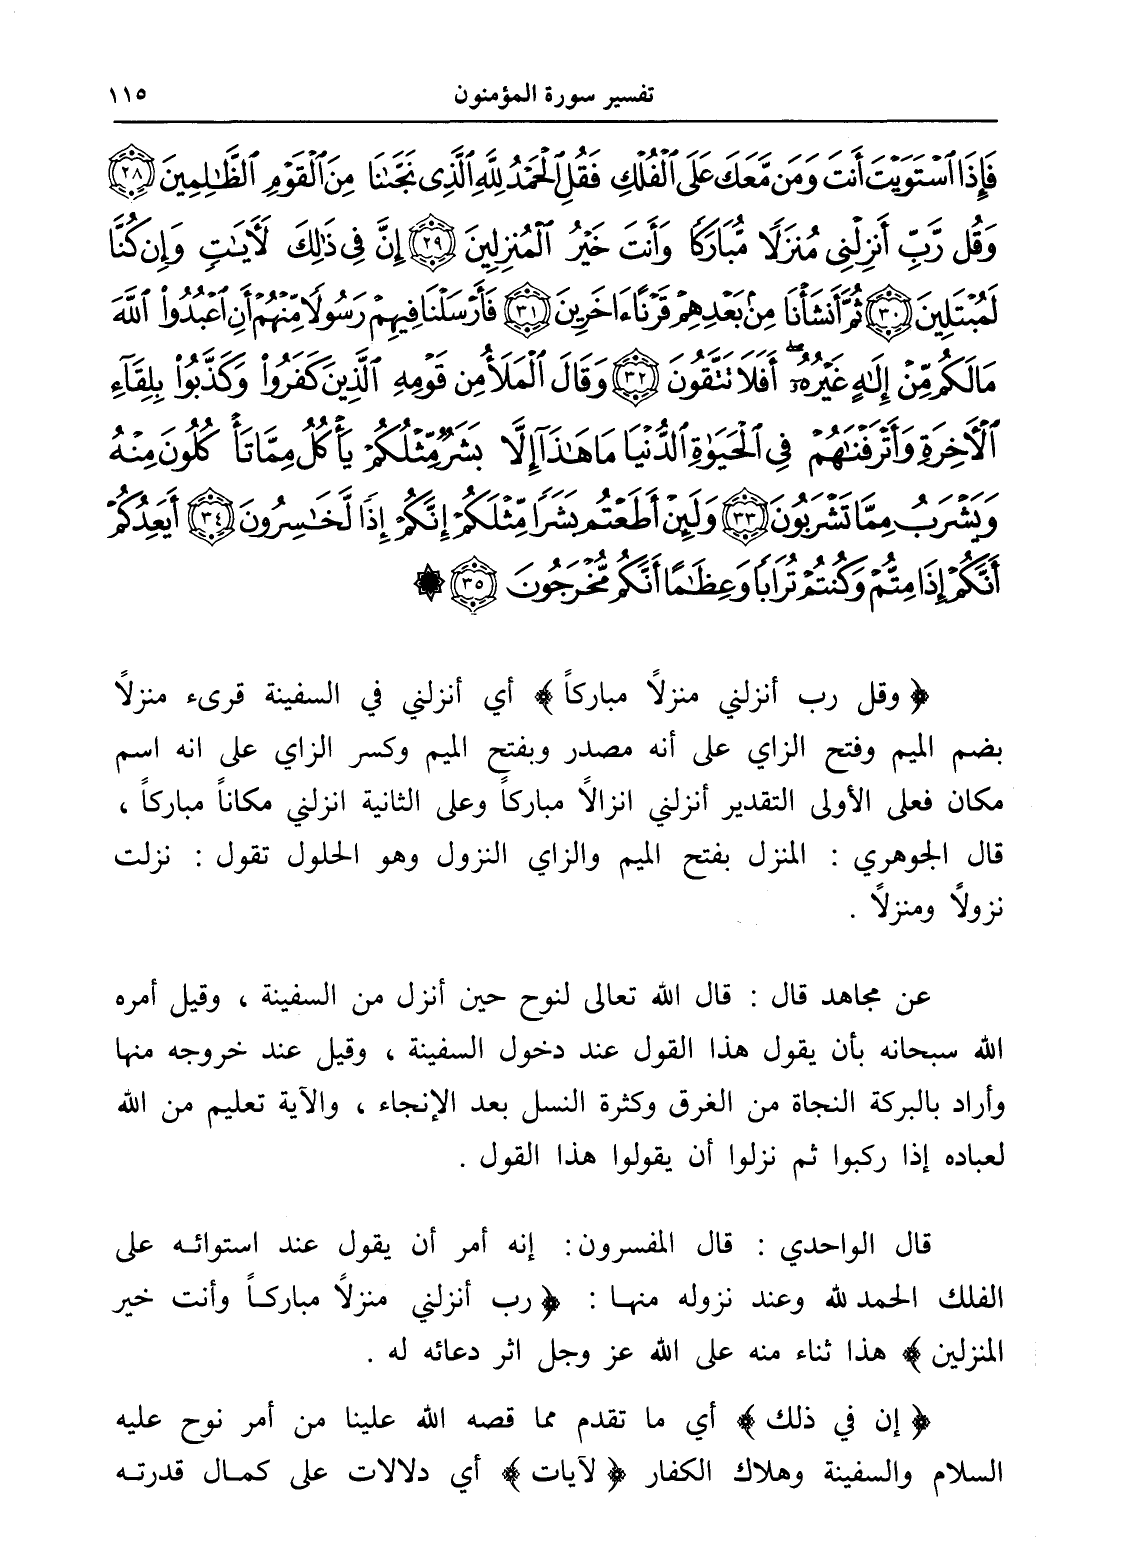 تفسير سورة المؤمنون ١١٥
فَإِذَا ٱسْتَوَيْتَ أَنتَ وَمَن مَّعَكَ عَلَى ٱلْفُلْكِ فَقُلِ ٱلْحَمْدُ لِلَّهِ ٱلَّذِى نَجَّىٰنَا مِنَ ٱلْقَوْمِ ٱلظَّٰلِمِينَ ٢٨
وَقُل رَّبِّ أَنزِلْنِى مُنزَلًا مُّبَارَكًا وَأَنتَ خَيْرُ ٱلْمُنزِلِينَ ٢٩ إِنَّ فِى ذَٰلِكَ لَأَيَٰتٍ وَإِن كُنَّا
لَمُبْتَلِينَ ٣٠ ثُمَّ أَنشَأْنَا مِنۢ بَعْدِهِمْ قَرْنًا ءَاخَرِينَ ٣١ فَأَرْسَلْنَا فِيهِمْ رَسُولًا مِّنْهُمْ أَنِ ٱعْبُدُوا۟ ٱللَّهَ
مَا لَكُم مِّنْ إِلَٰهٍ غَيْرُهُۥٓ ۖ أَفَلَا تَتَّقُونَ ٣٢ وَقَالَ ٱلْمَلَأُ مِن قَوْمِهِ ٱلَّذِينَ كَفَرُوا۟ وَكَذَّبُوا۟ بِلِقَآءِ
ٱلْأَخِرَةِ وَأَتْرَفْنَٰهُمْ فِى ٱلْحَيَوٰةِ ٱلدُّنْيَا مَا هَٰذَآ إِلَّا بَشَرٌ مِّثْلُكُمْ يَأْكُلُ مِمَّا تَأْكُلُونَ مِنْهُ
وَيَشْرَبُ مِمَّا تَشْرَبُونَ ٣٣ وَلَئِنْ أَطَعْتُم بَشَرًا مِّثْلَكُمْ إِنَّكُمْ إِذًا لَّخَٰسِرُونَ ٣٤ أَيَعِدُكُمْ
أَنَّكُمْ إِذَا مِتُّمْ وَكُنتُمْ تُرَابًا وَعِظَٰمًا أَنَّكُم مُّخْرَجُونَ ٣٥
﴿ وقل رب أنزلني منزلاً مباركاً ﴾ أي أنزلني في السفينة قرىء منزلاً
بضم الميم وفتح الزاي على أنه مصدر وبفتح الميم وكسر الزاي على انه اسم
مكان فعلى الأولى التقدير أنزلني انزالاً مباركاً وعلى الثانية انزلني مكاناً مباركاً ،
قال الجوهري : المنزل بفتح الميم والزاي النزول وهو الحلول تقول : نزلت
نزولاً ومنزلاً .
عن مجاهد قال : قال الله تعالى لنوح حين أنزل من السفينة ، وقيل أمره
الله سبحانه بأن يقول هذا القول عند دخول السفينة ، وقيل عند خروجه منها
وأراد بالبركة النجاة من الغرق وكثرة النسل بعد الإنجاء ، والآية تعليم من الله
لعباده إذا ركبوا ثم نزلوا أن يقولوا هذا القول .
قال الواحدي : قال المفسرون : إنه أمر أن يقول عند استوائه على
الفلك الحمد لله وعند نزوله منها : ﴿ رب أنزلني منزلاً مباركاً وأنت خير
المنزلين ﴾ هذا ثناء منه على الله عز وجل اثر دعائه له .
﴿ إن في ذلك ﴾ أي ما تقدم مما قصه الله علينا من أمر نوح عليه
السلام والسفينة وهلاك الكفار ﴿ لآيات ﴾ أي دلالات على كمال قدرته